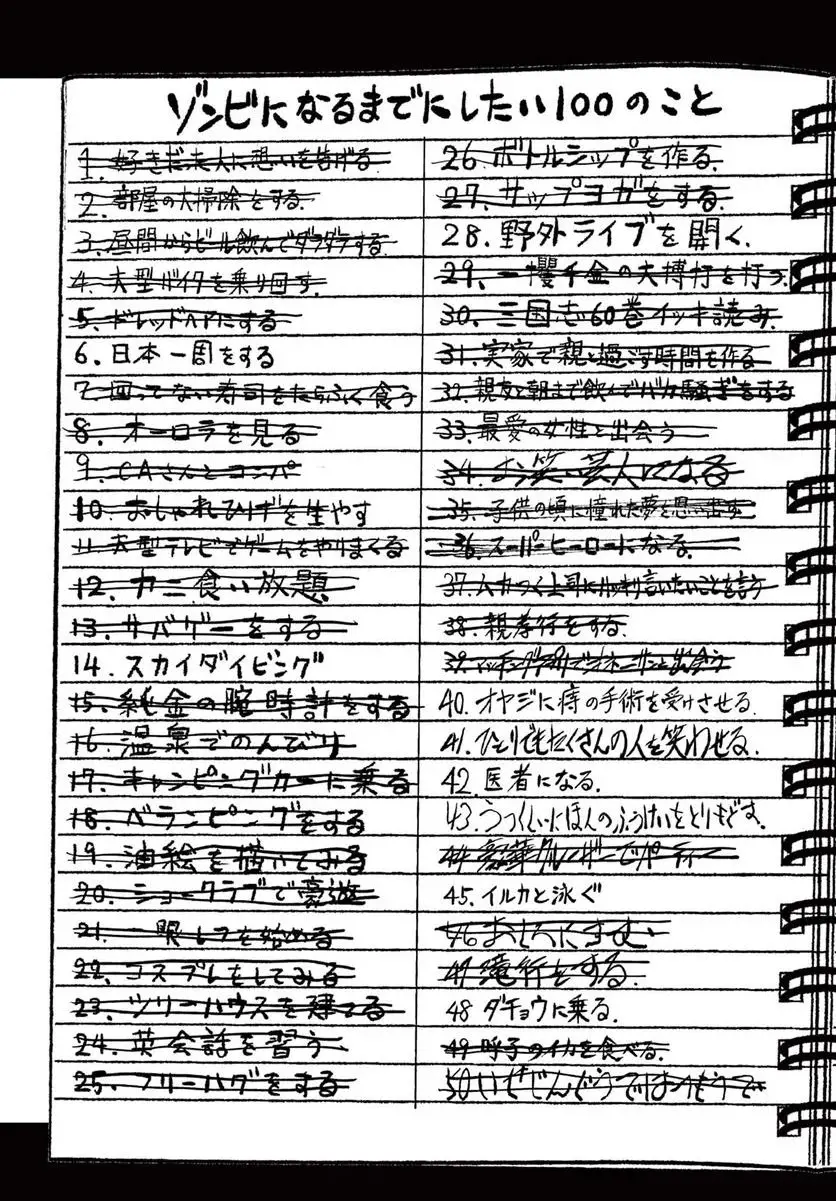 ゾンビになるまでにしたい100のこと
1. 好きだった人に想いを告げる
2. 部屋の大掃除をする.
3. 昼間からビール飲んでダラダラする
4. 大型バイクを乗り回す.
5. ドレッドヘアにする
6. 日本一周をする
7. 回ってない寿司をたらふく食う
8. オーロラを見る
9. CAさんとコンパ
10. おしゃれひげを生やす
11. 大型テレビでゲームをやりまくる
12. カニ食い放題
13. サバゲーをする
14. スカイダイビング
15. 純金の腕時計をする
16. 温泉でのんびり
17. キャンピングカーに乗る
18. ベランピングをする
19. 油絵を描いてみる
20. ショークラブで豪遊
21. 一眼レフを始める
22. コスプレをしてみる
23. ツリーハウスを建てる
24. 英会話を習う
25. フリーハグをする
26. ボトルシップを作る.
27. サップヨガをする
28. 野外ライブを開く.
29. 一攫千金の大博打を打つ
30. 三国志60巻イッキ読み
31. 実家で親と過ごす時間を作る
32. 親友と朝まで飲んでバカ騒ぎをする
33. 最愛の女性と出会う
34. お笑い芸人になる
35. 子供の頃に憧れた夢を思い出す
36. スーパーヒーローになる.
37. ムカつく上司にハッキリ言いたいことを言う
38. 親孝行をする.
39. マッチングアプリでオネーサンと出会う
40. オヤジに痔の手術を受けさせる.
41. ひとりでもたくさんの人を笑わせる.
42. 医者になる.
43. うつくしいにほんのふうけいをとりもどす.
44. 豪華クルーザーでパーティー
45. イルカと泳ぐ
46
47
をする.
48 ダチョウに乗る.
49. 呼子のイカを食べる.
50.